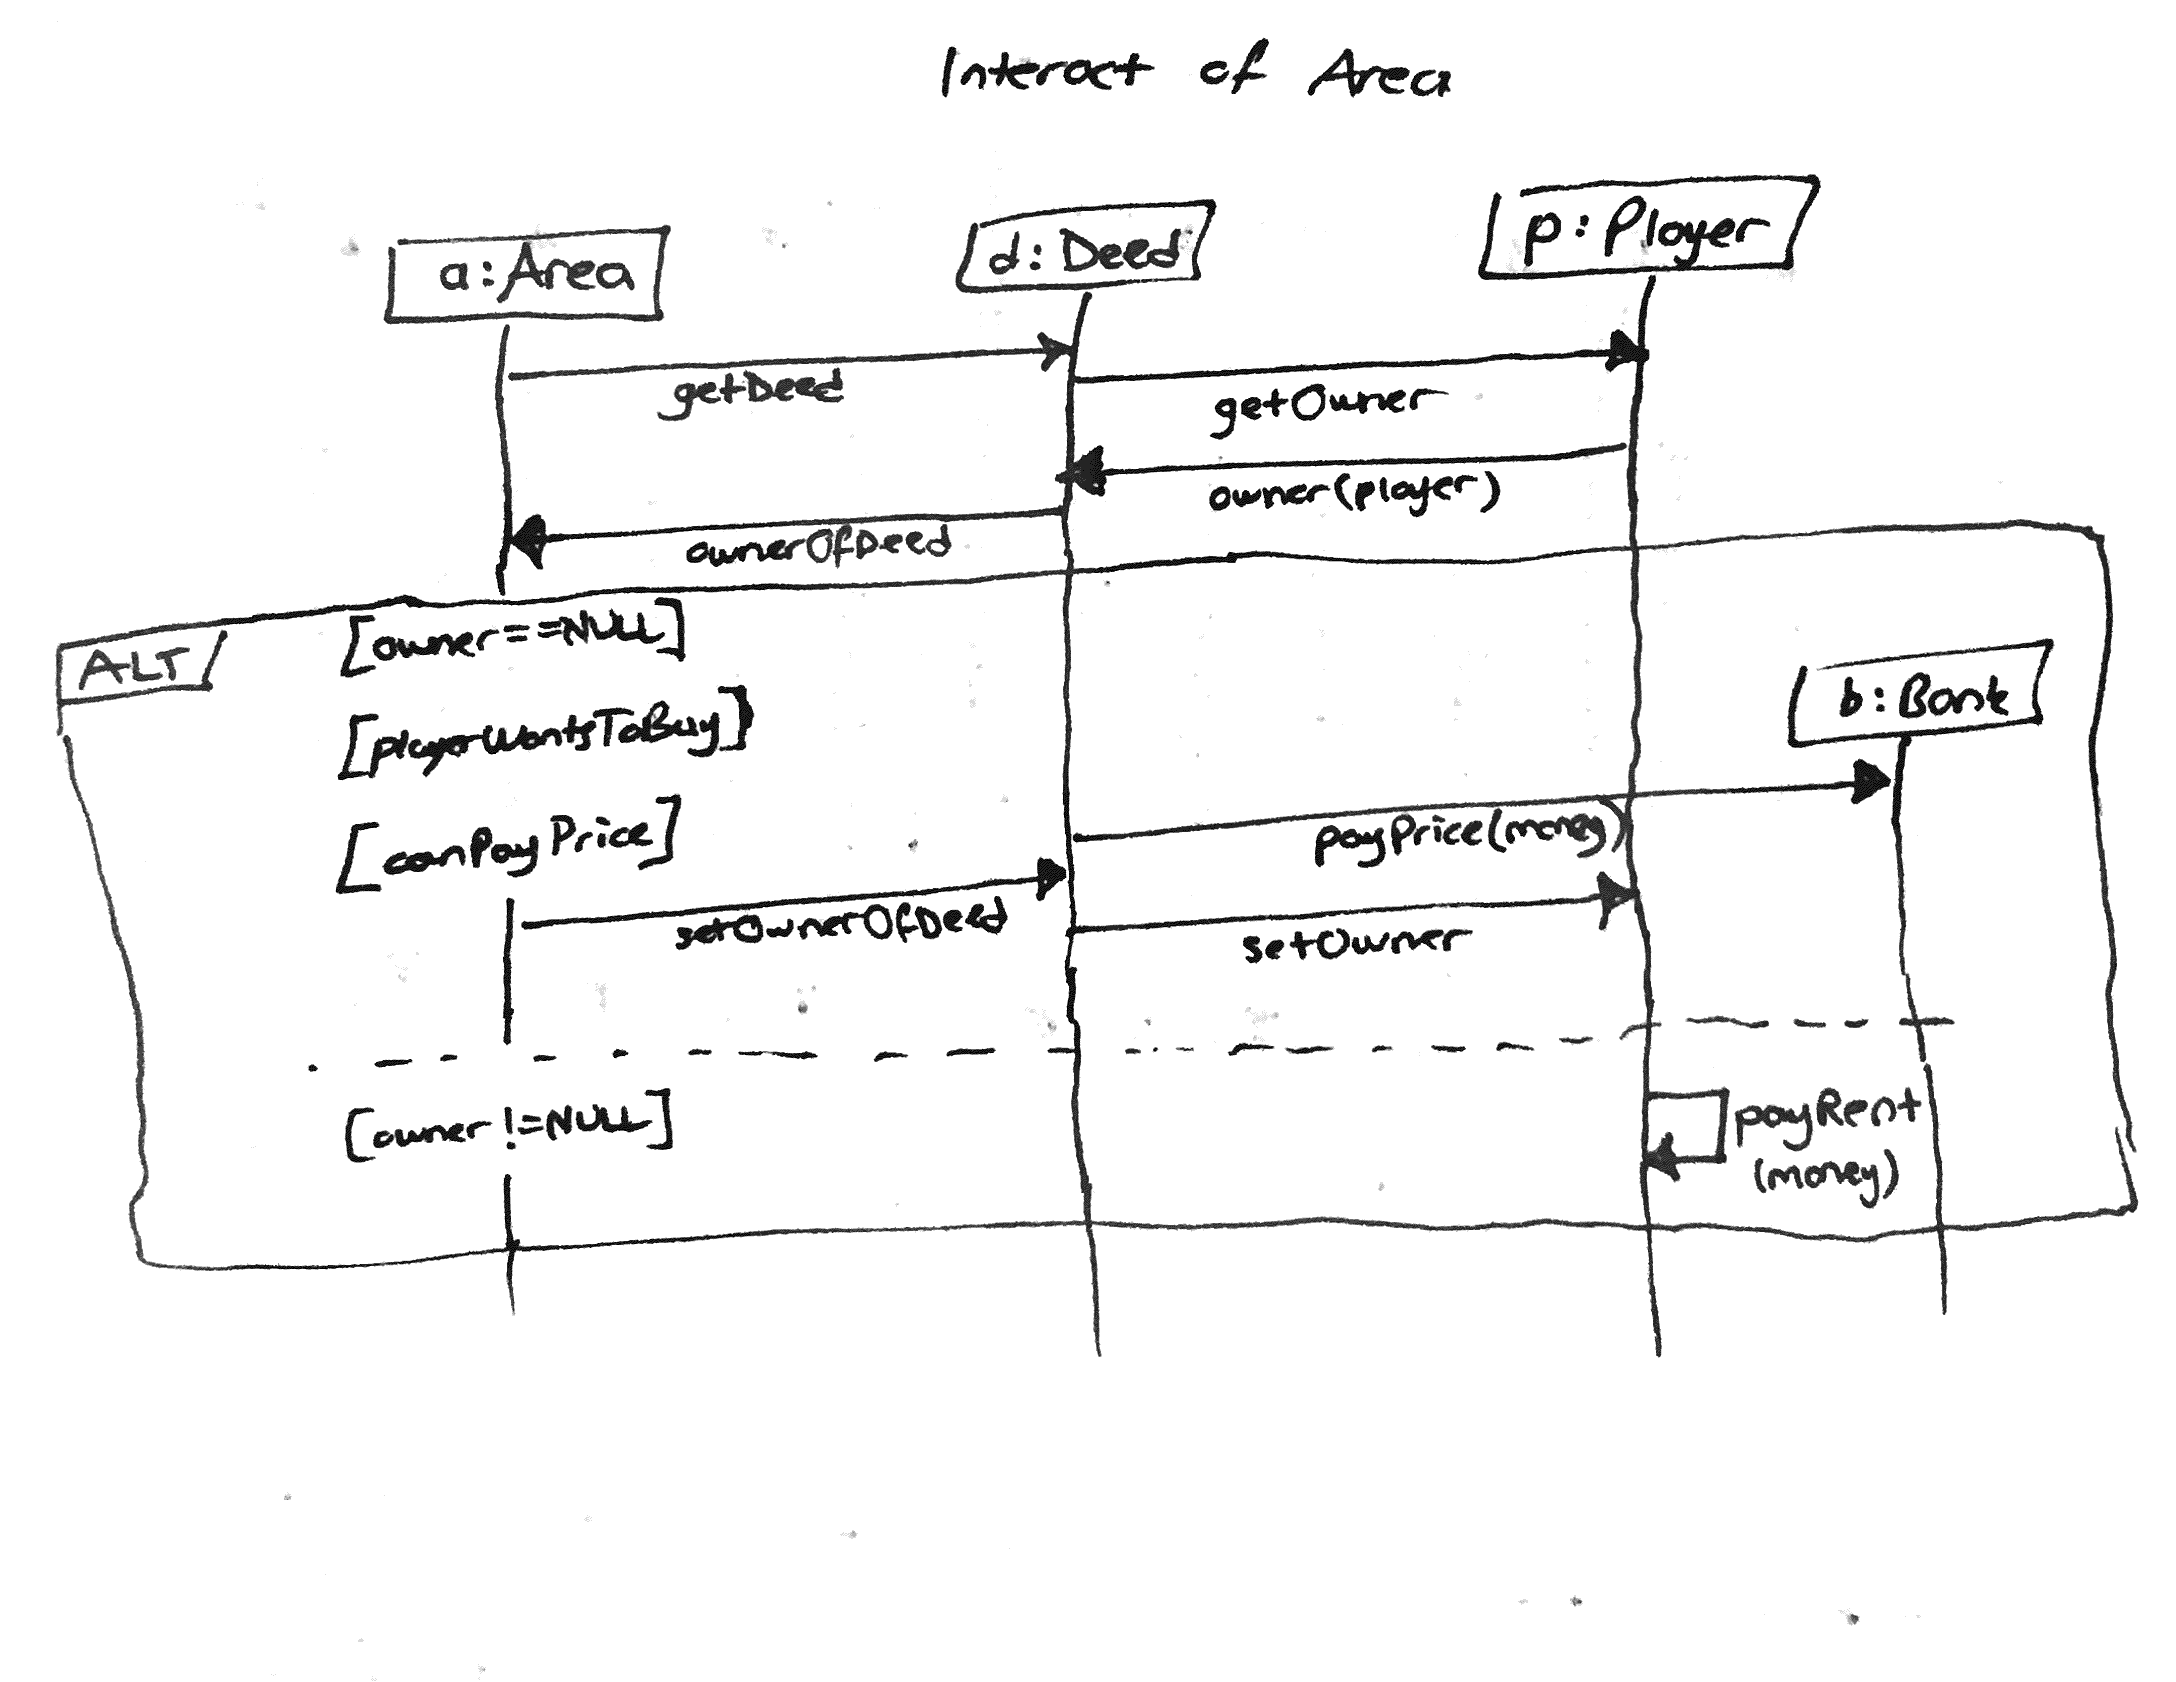 Interact of Area
a:Area
d:Deed
p:Player
getDeed
getOwner
owner(player)
ownerOfDeed
ALT
[owner==NULL]
[playerWantsToBuy]
b:Bank
[canPayPrice]
payPrice(money)
setOwnerOfDeed
setOwner
[owner!=NULL]
payRent
(money)